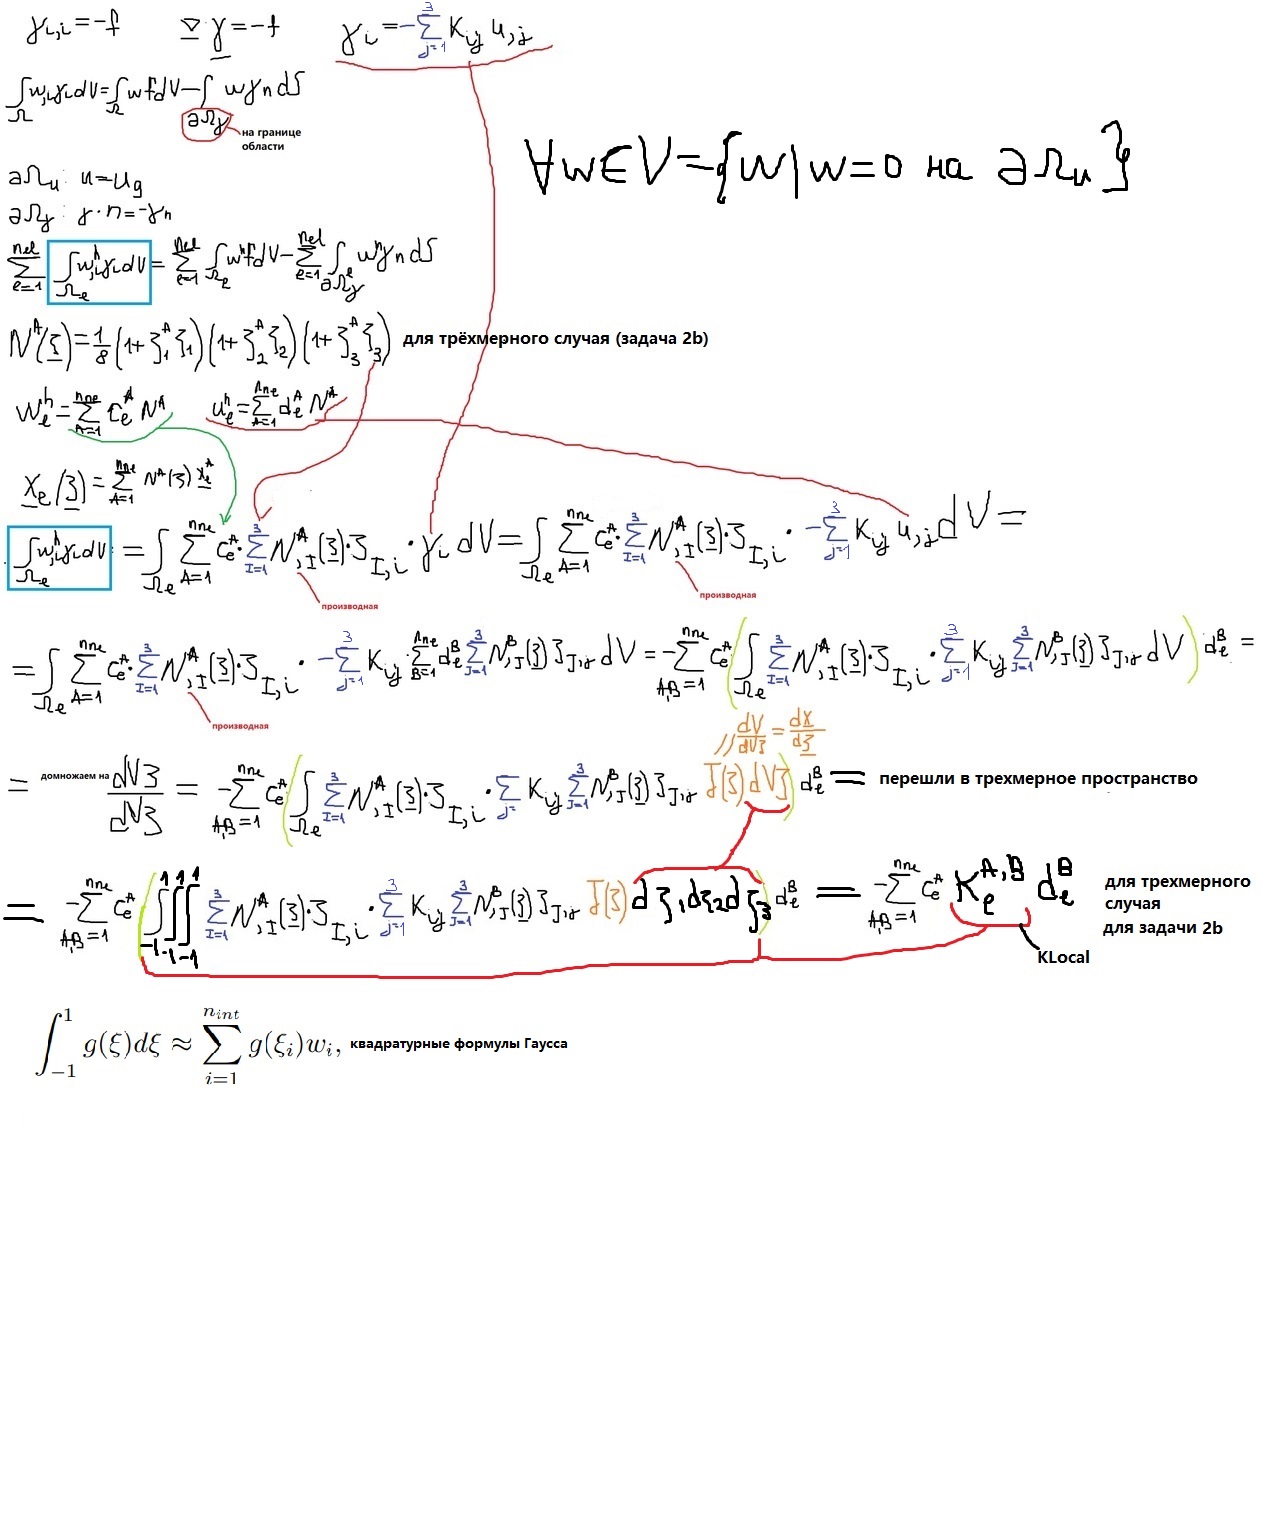 γ_{i,i} = -f ∇·γ = -f γ_i = -∑_{j=1}^{3} K_{ij} u_{,j}
∫_Ω w_{,i} γ_i dV = ∫_Ω w f dV - ∫_{∂Ω_γ} w γ_n dS
на границе
области
∀w∈V={w|w=0 на ∂Ω_u}
∂Ω_u: u = u_g
∂Ω_γ: γ·n = -γ_n
∑_{e=1}^{nel} ∫_{Ω_e} w^h_{,i} γ_i dV = ∑_{e=1}^{nel} ∫_{Ω_e} w^h f dV - ∑_{e=1}^{nel} ∫_{∂Ω^e_γ} w^h γ_n dS
N^A(ξ) = 1/8 (1+ξ_1^A ξ_1)(1+ξ_2^A ξ_2)(1+ξ_3^A ξ_3) для трёхмерного случая (задача 2b)
w_e^h = ∑_{A=1}^{nne} c_e^A N^A u_e^h = ∑_{A=1}^{nne} d_e^A N^A
x_e(ξ) = ∑_{A=1}^{nne} N^A(ξ) x_e^A
∫_{Ω_e} w^h_{,i} γ_i dV = ∫_{Ω_e} ∑_{A=1}^{nne} c_e^A · ∑_{I=1}^{3} N^A_{,I}(ξ)·ξ_{I,i} · γ_i dV = ∫_{Ω_e} ∑_{A=1}^{nne} c_e^A · ∑_{I=1}^{3} N^A_{,I}(ξ)·ξ_{I,i} · -∑_{j=1}^{3} K_{ij} u_{,j} dV =
производная производная
= ∫_{Ω_e} ∑_{A=1}^{nne} c_e^A · ∑_{I=1}^{3} N^A_{,I}(ξ)·ξ_{I,i} · -∑_{j=1}^{3} K_{ij} · ∑_{B=1}^{nne} d_e^B ∑_{J=1}^{3} N^B_{,J}(ξ) ξ_{J,j} dV = -∑_{A,B=1}^{nne} c_e^A (∫_{Ω_e} ∑_{I=1}^{3} N^A_{,I}(ξ)·ξ_{I,i} · ∑_{j=1}^{3} K_{ij} ∑_{J=1}^{3} N^B_{,J}(ξ) ξ_{J,j} dV) d_e^B =
производная
// dV/dVξ = dx/dξ
= домножаем на dVξ/dVξ = -∑_{A,B=1}^{nne} c_e^A (∫_{Ω_e} ∑_{I=1}^{3} N^A_{,I}(ξ)·ξ_{I,i} · ∑_{j=} K_{ij} ∑_{J=1}^{3} N^B_{,J}(ξ) ξ_{J,j} J(ξ) dVξ) d_e^B = перешли в трехмерное пространство
= -∑_{A,B=1}^{nne} c_e^A (∫_{-1}^{1} ∫_{-1}^{1} ∫_{-1}^{1} ∑_{I=1}^{3} N^A_{,I}(ξ)·ξ_{I,i} · ∑_{j=1}^{3} K_{ij} ∑_{J=1}^{3} N^B_{,J}(ξ) ξ_{J,j} J(ξ) dξ_1 dξ_2 dξ_3) d_e^B = -∑_{A,B=1}^{nne} c_e^A K_e^{A,B} d_e^B
для трехмерного
случая
для задачи 2b
KLocal
∫_{-1}^{1} g(ξ)dξ ≈ ∑_{i=1}^{n_{int}} g(ξ_i)w_i, квадратурные формулы Гаусса